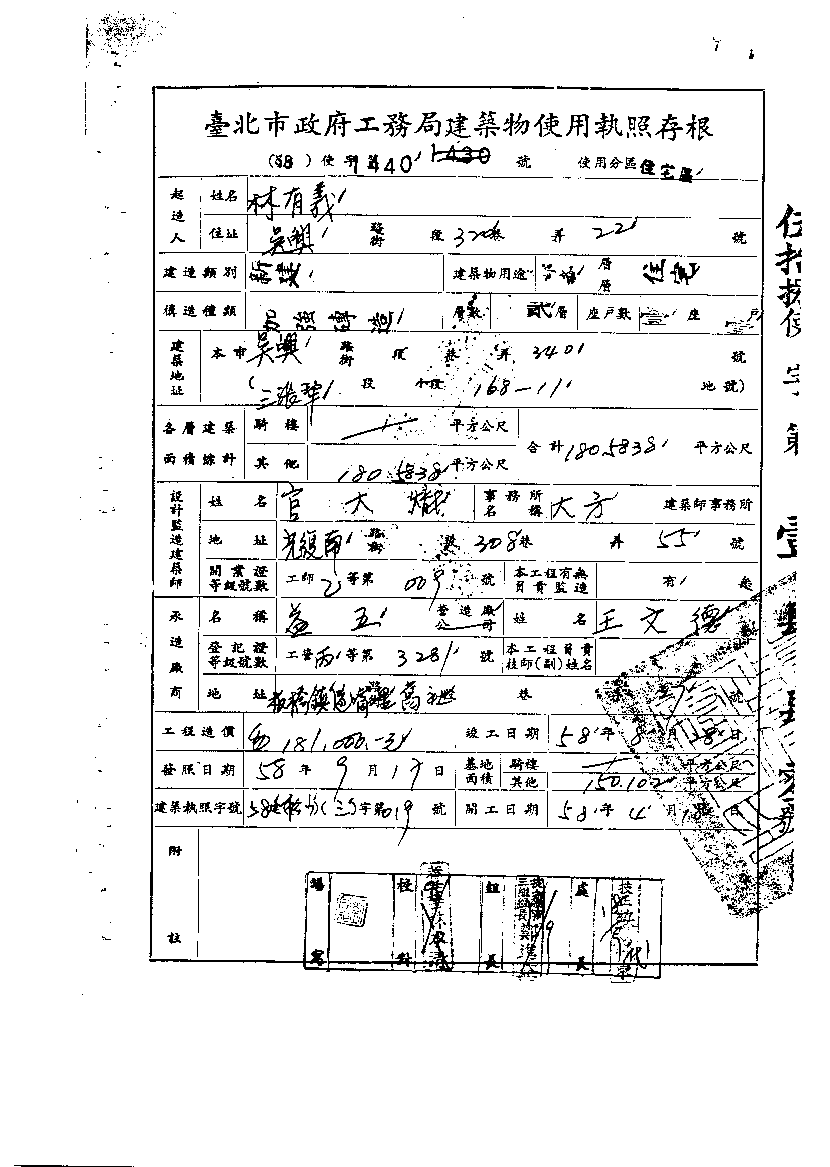 臺北市政府工務局建築物使用執照存根
(58) 使字第1440 1430 號 使用分區 住宅區
起造人 姓名 林有義
住址 吳興 路街 段 320巷 弄 22 號
建造類別 新建 建築物用途 層層 住宅
構造種類 加強磚造 層數 貳層 座戶數 座 戶
建築地址 本市 吳興 路街 段 巷 弄 340 號
(三張犂 段 小段 168-11 地號)
各層建築面積總計 騎樓 平方公尺 合計 180.5838 平方公尺
其他 180.5838 平方公尺
設計監造建築師 姓名 官大 事務所名稱 大方 建築師事務所
地址 光復南 路街 段 308巷 弄 55 號
開業證等級號數 工師 乙等第 009 號 本工程有無負責監造 有 無
承造廠商 名稱 益五 營造廠公司 姓名 王文德
登記證等級號數 工營丙等第 3281 號 本工程負責技師(副)姓名
地址 板橋鎮 巷 號
工程造價 181,000.-元 竣工日期 58年8月28日
發照日期 58年9月17日 基地面積 騎樓 平方公尺
其他 150.102 平方公尺
建築執照字號 字第019號 開工日期 58年4月18日
附註
校對 組長 處長